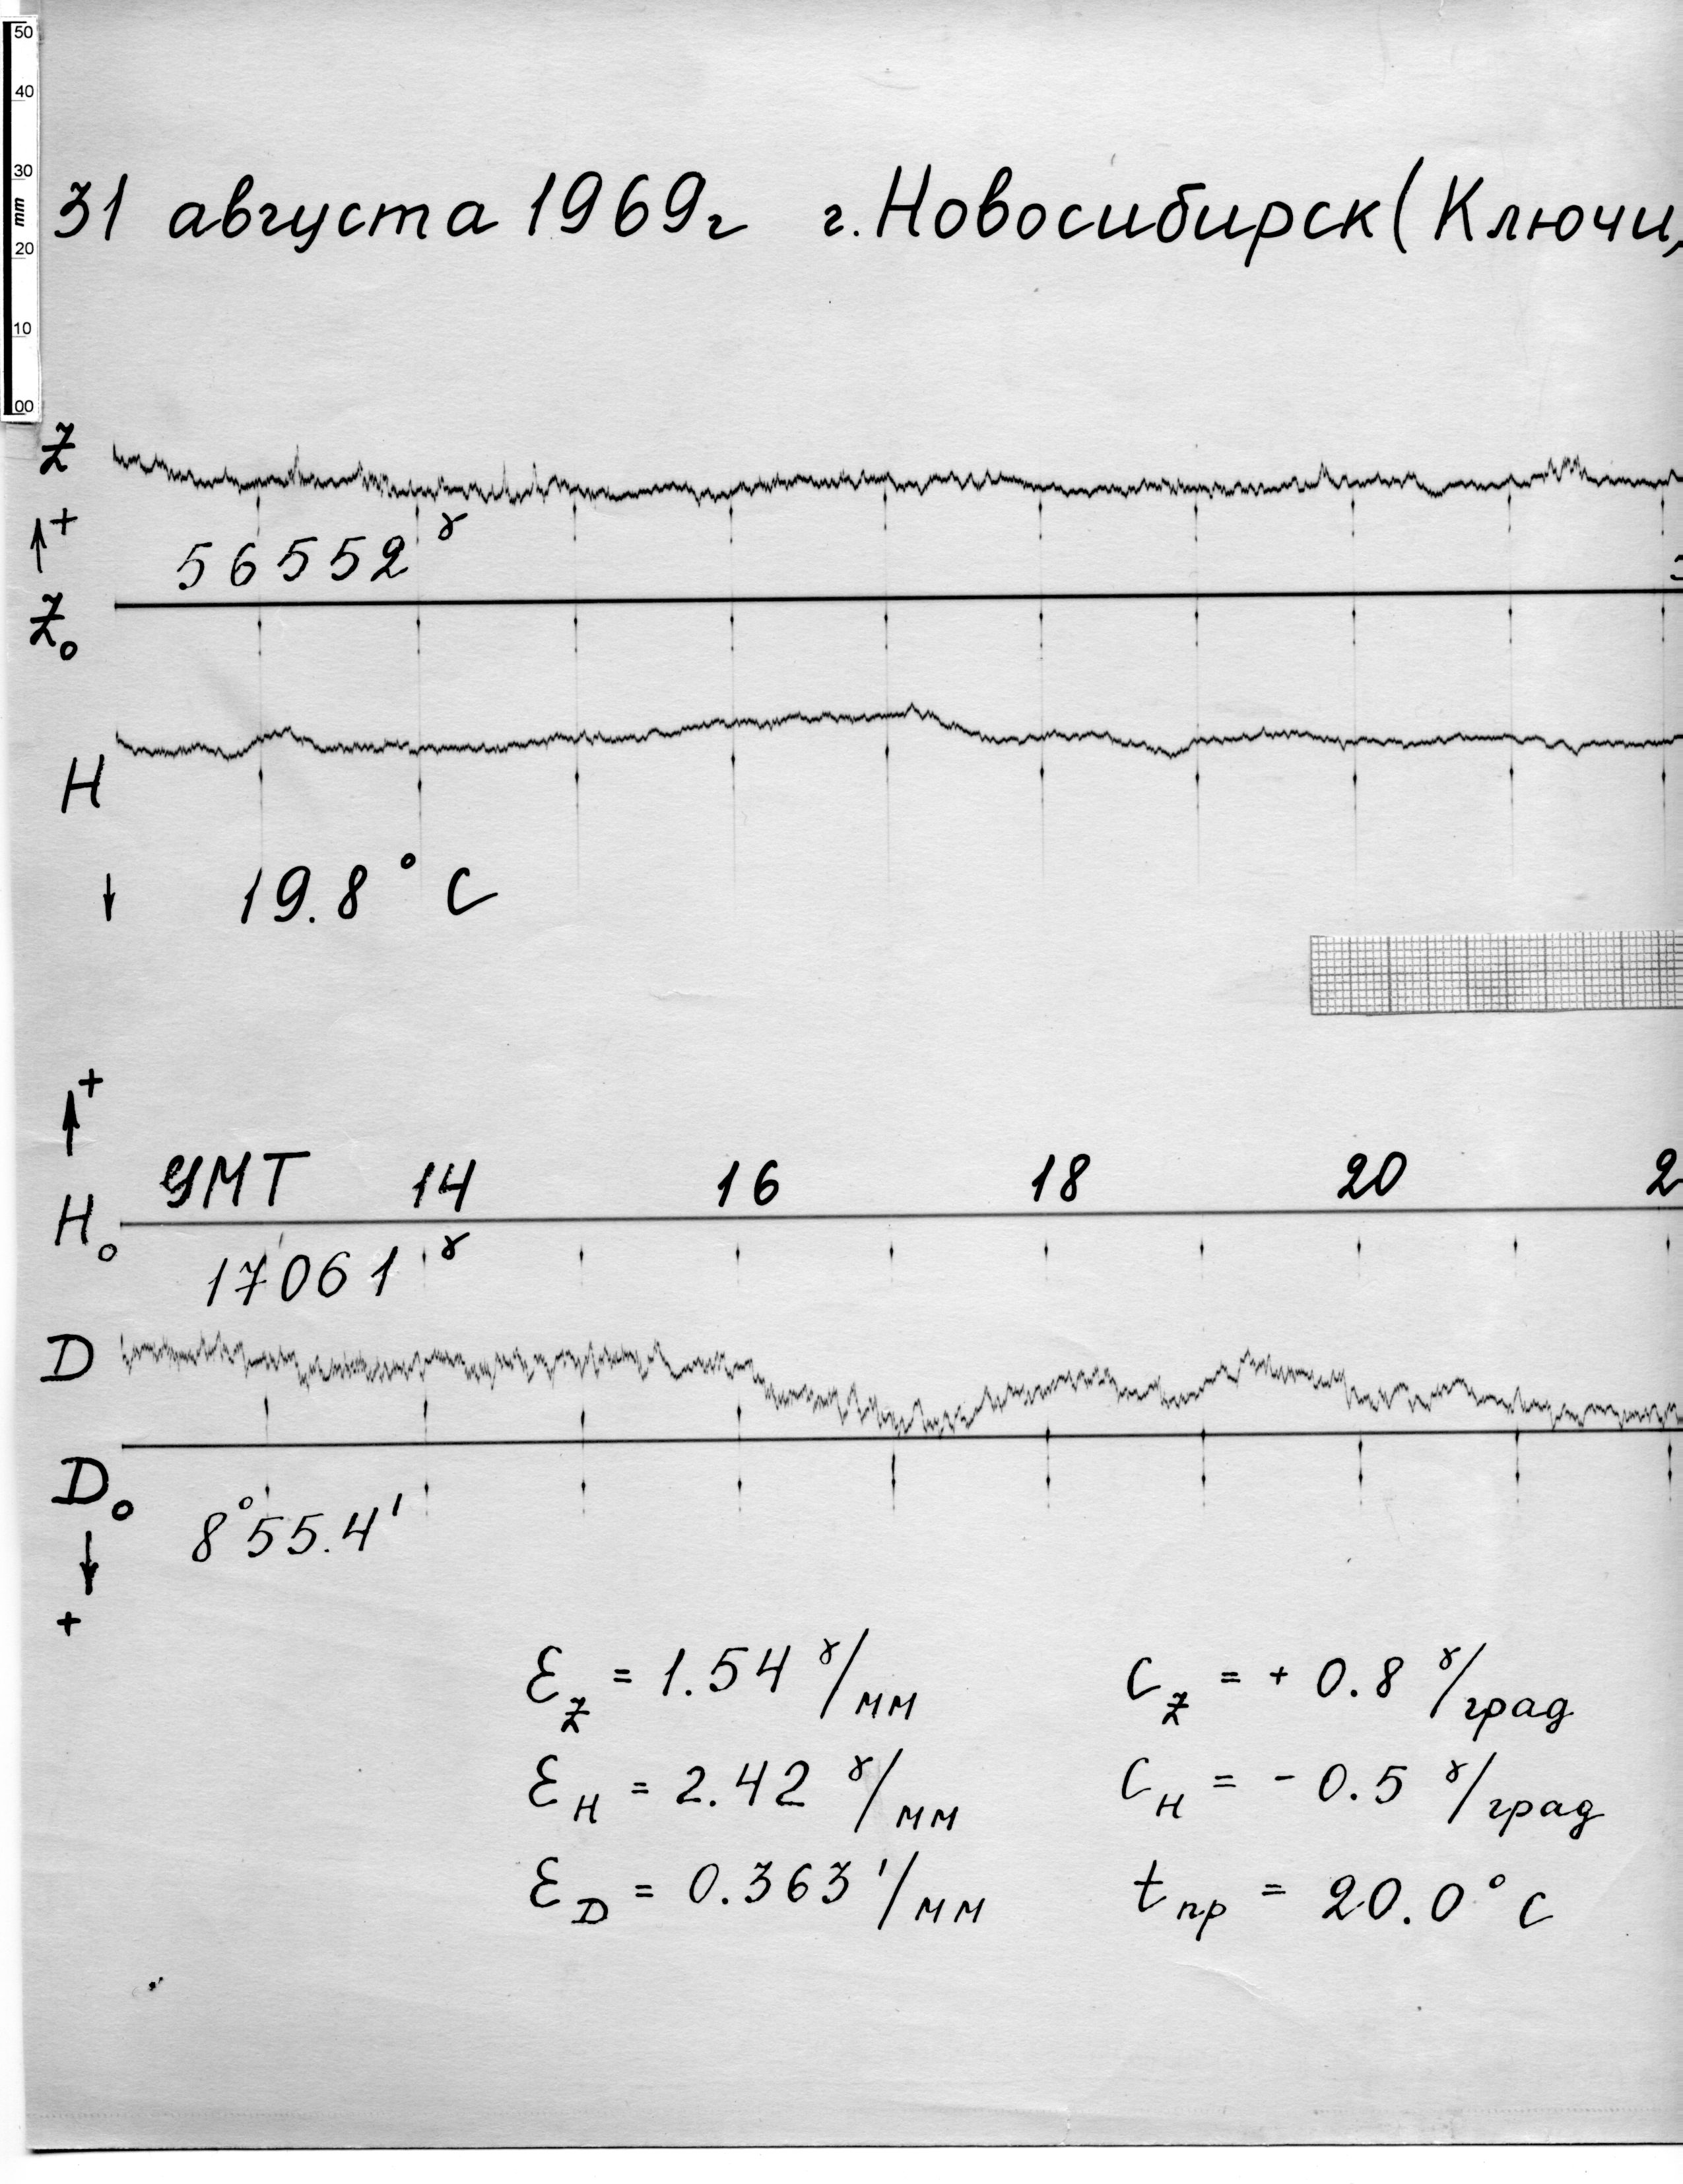 50
40
30
mm
20
10
00
31 августа 1969г г. Новосибирск (Ключи,
Z
+
56552 γ
Z₀
H
19.8° C
+
УМТ 14 16 18 20 2
H₀
17061 γ
D
D₀
8°55.4'
+
Ɛ_Z = 1.54 γ/мм C_Z = + 0.8 γ/град
Ɛ_H = 2.42 γ/мм C_H = - 0.5 γ/град
Ɛ_D = 0.363 '/мм t_пр = 20.0° C